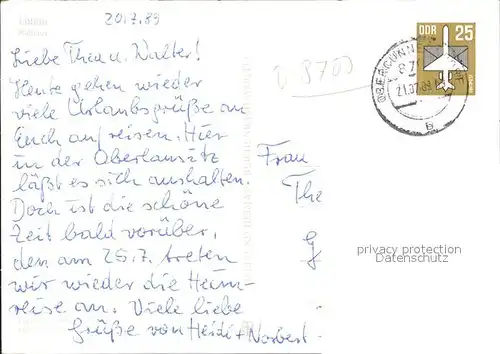 20.7.89
Liebe Thea u. Walter!
Heute gehen wieder
viele Urlaubsgrüße an
Euch auf reisen. Hier
in der Oberlausitz
läßt es sich aushalten.
Doch ist die schöne
Zeit bald vorüber,
den am 25.7. treten
wir wieder die Heim-
reise an. Viele liebe
Grüße von Heidi + Norbert
D-8700
DDR 25
21.07.89
b
Frau
The
G
privacy protection
Datenschutz